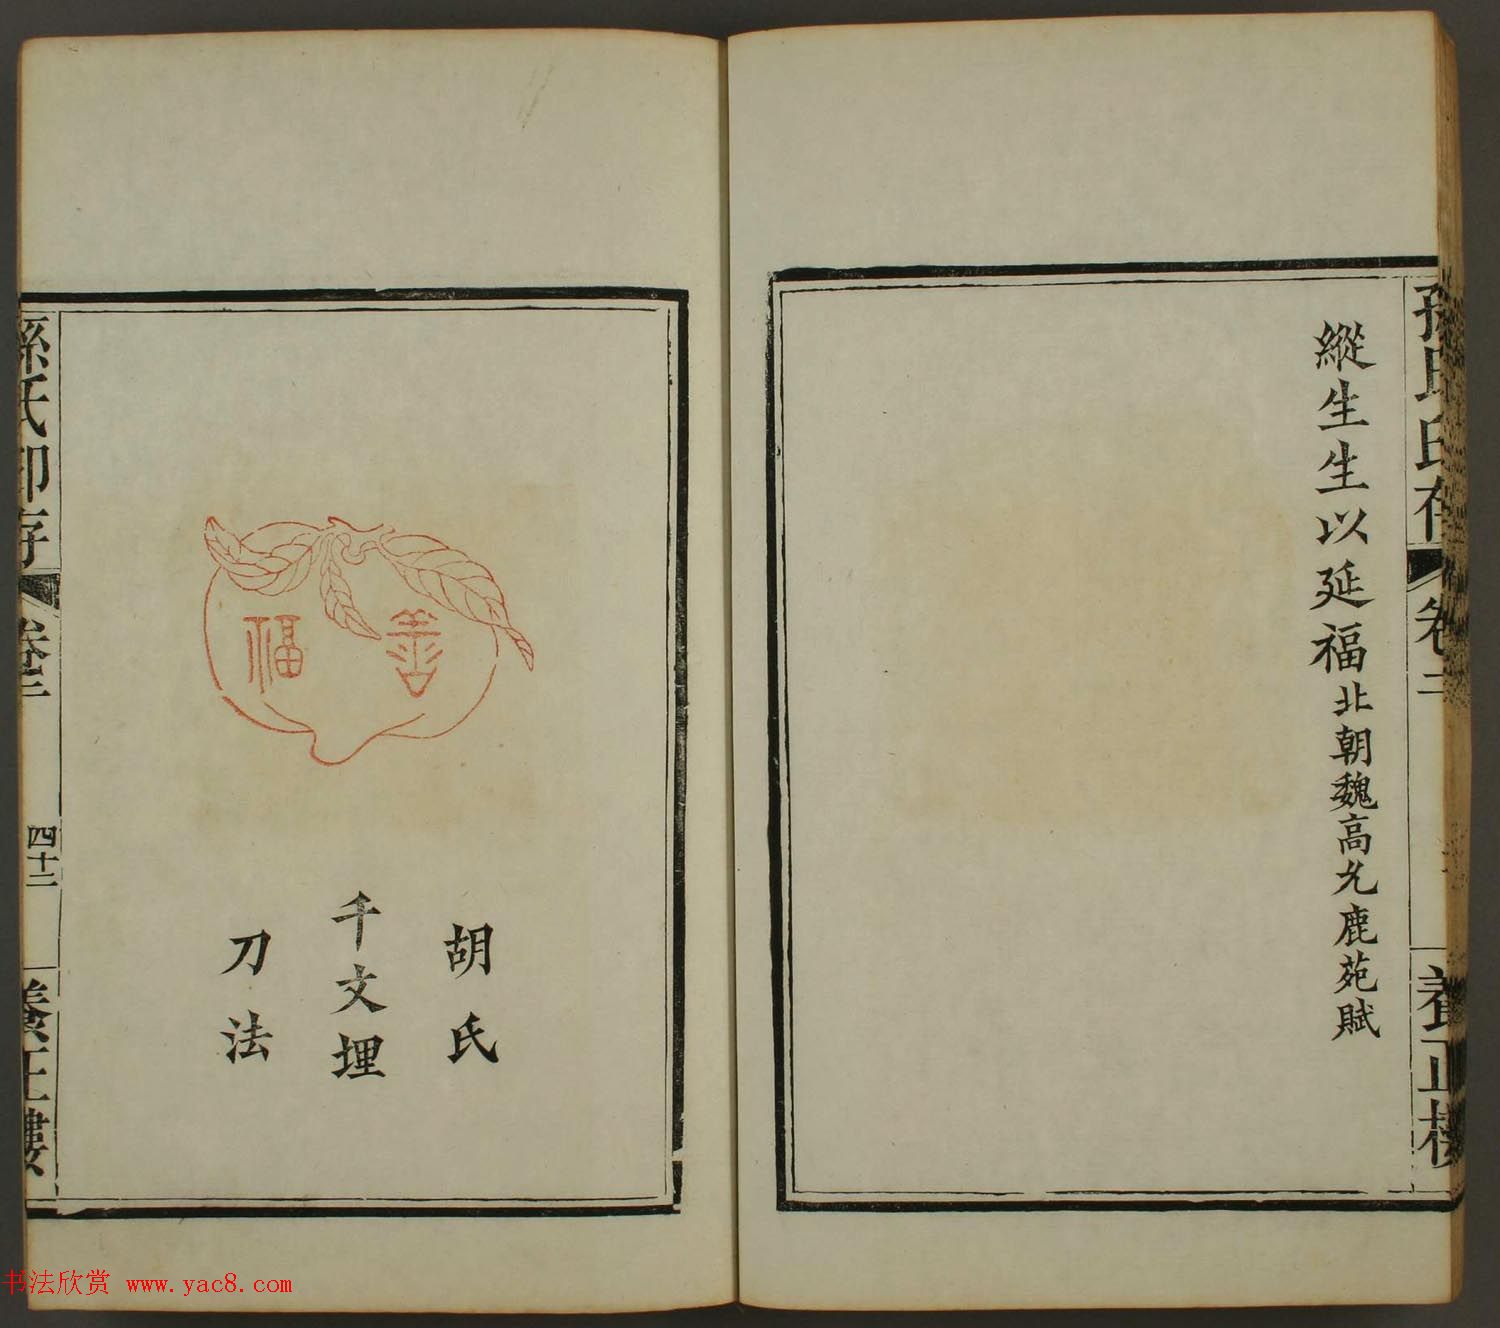 孫氏印存
卷二
養正樓
縱生生以延福北朝魏高允鹿苑賦
善福
胡氏
千文埋
刀法
孫氏印存
卷二
四十二
養正樓
书法欣赏 www.yac8.com